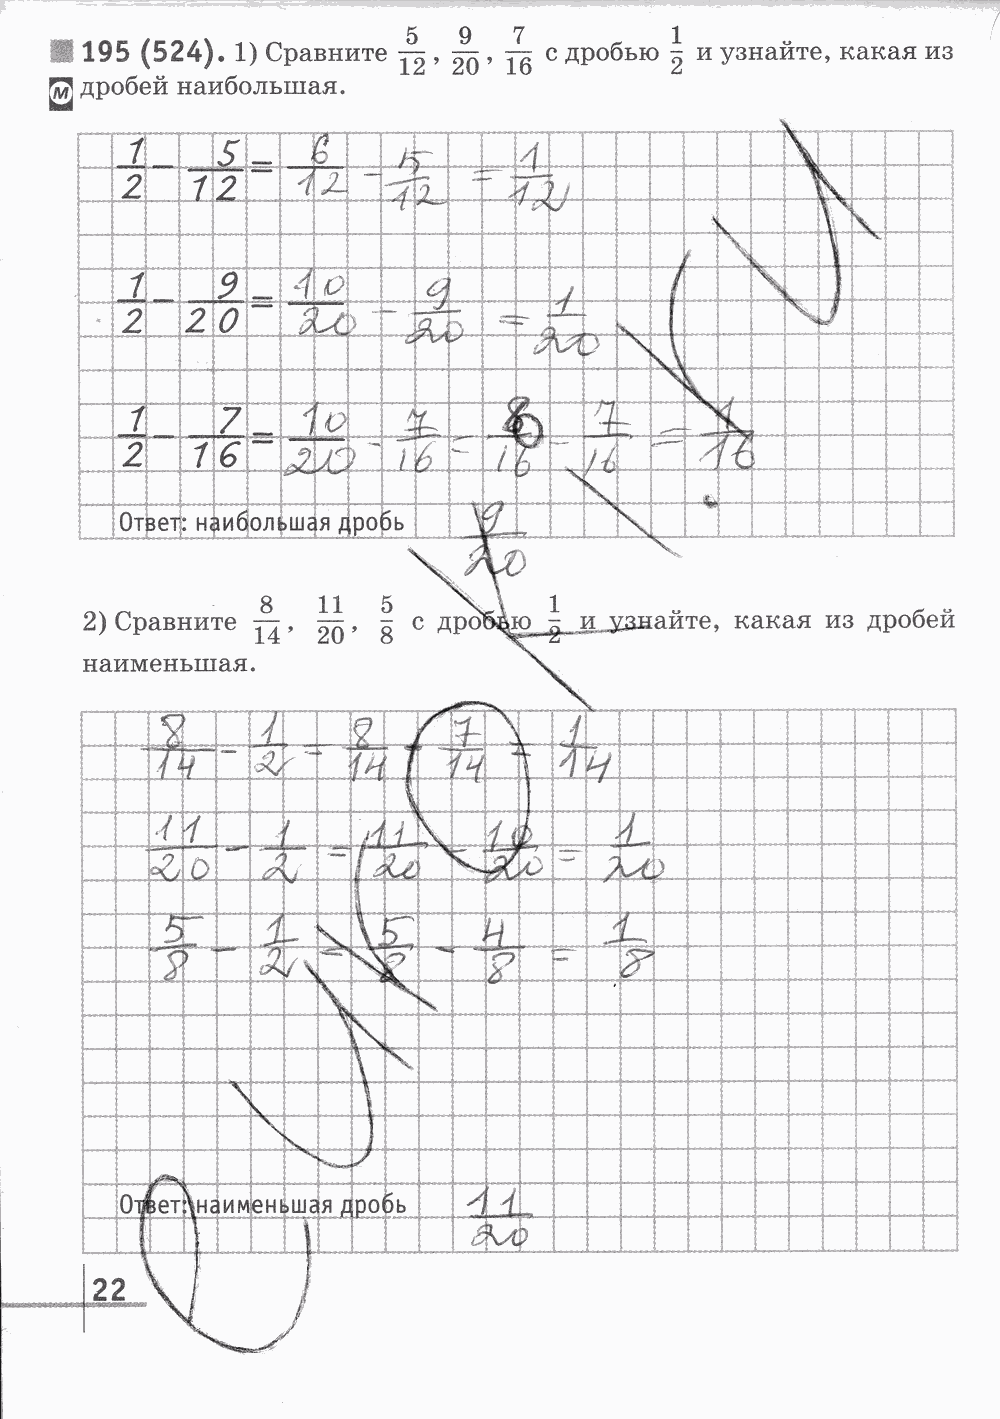 195 (524). 1) Сравните 5/12, 9/20, 7/16 с дробью 1/2 и узнайте, какая из
М дробей наибольшая.
1/2 - 5/12 = 6/12 - 5/12 = 1/12
1/2 - 9/20 = 10/20 - 9/20 = 1/20
1/2 - 7/16 = 10/20 - 7/16 = 8/16 - 7/16 = 1/16
Ответ: наибольшая дробь 9/20
2) Сравните 8/14, 11/20, 5/8 с дробью 1/2 и узнайте, какая из дробей
наименьшая.
8/14 - 1/2 = 8/14 - 7/14 = 1/14
11/20 - 1/2 = 11/20 - 10/20 = 1/20
5/8 - 1/2 = 5/8 - 4/8 = 1/8
Ответ: наименьшая дробь 11/20
22